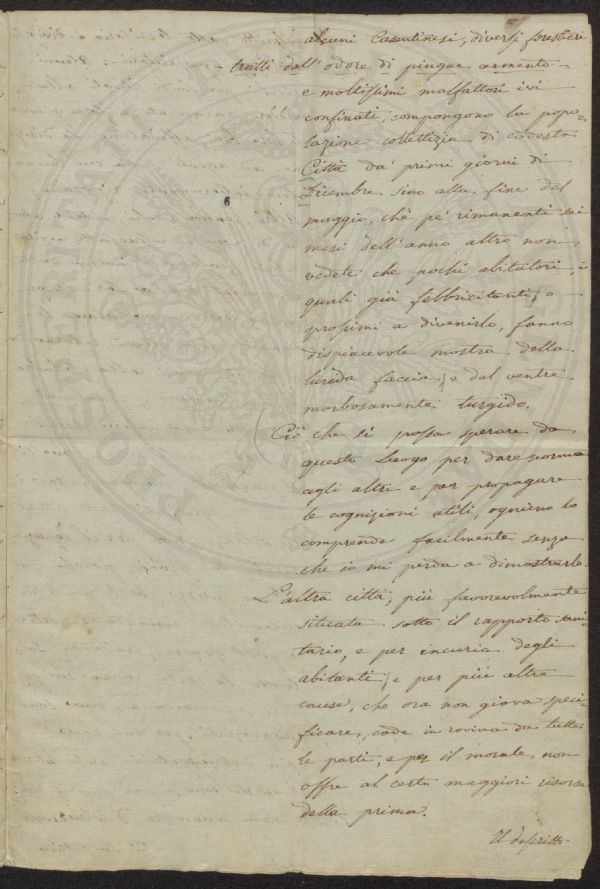 alcuni Casentinesi, diversi forestieri
tratti dall'odore di pingue armento
e moltissimi malfattori ivi
confinati, compongono la popo-
lazione collettizia di codesta
Città da' primi giorni di
Dicembre sino alla fine del
maggio, chè pe' rimanenti sei
mesi dell'anno altro non
vedete che pochi abitatori, i
quali già febbricitanti, o
prossimi a divenirlo, fanno
dispiacevole mostra della
lurida faccia, e del ventre
morbosamente turgido.
Ciò che si possa sperare da
questo Luogo per dare norma
agli altri e per propagare
le cognizioni utili, ognuno lo
comprende facilmente senza
che io mi perda a dimostrarlo.
L'altra città, più favorevolmente
situata sotto il rapporto sani-
tario, e per incuria degli
abitanti, e per più altre
cause, che ora non giova speci-
ficare, cade in rovina da tutte
le parti, e per il morale non
offre al certo maggiori risorse
della prima.
Il descritto